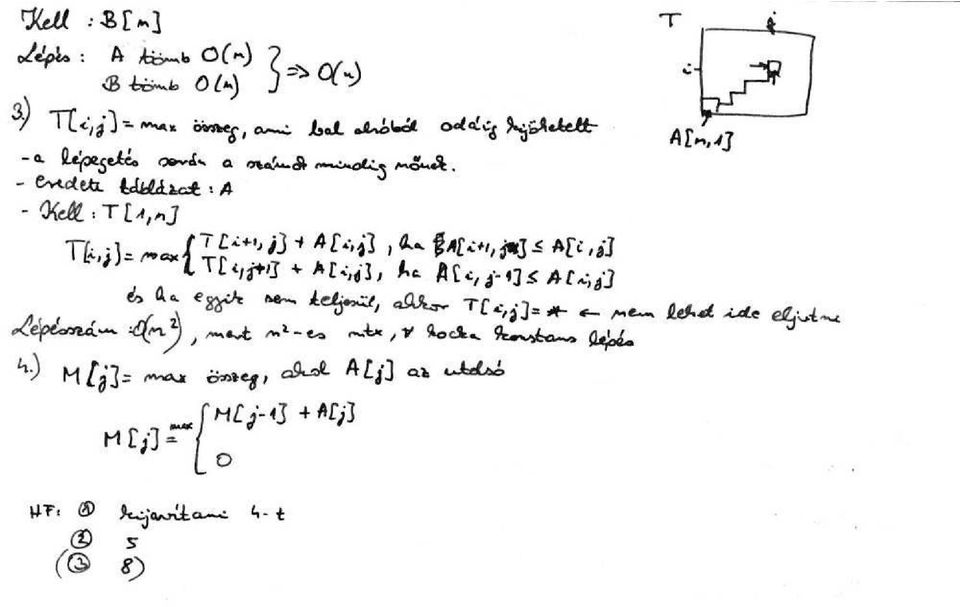 Kell : B[n]
Lépés : A tömb O(n)
B tömb O(n) } => O(n)
T
j
i
A[n,1]
3.) T[i,j] = max összeg, ami bal alsóból odáig kijöhetett
- a lépegetés során a számok mindig nőnek.
- eredeti táblázat : A
- Kell : T[1,n]
T[i,j] = max { T[i+1,j] + A[i,j] , ha A[i+1,j] ≤ A[i,j]
T[i,j+1] + A[i,j] , ha A[i,j-1] ≤ A[i,j]
és ha egyik sem teljesül, akkor T[i,j] = * ← nem lehet ide eljutni
Lépésszám : O(n²) , mert n²-es mtx, ∀ kocka konstans lépés
4.) M[j] = max összeg, ahol A[j] az utolsó
M[j] = max { M[j-1] + A[j]
0
HF: ① kijavítani 4-t
② 5
(③ 8)